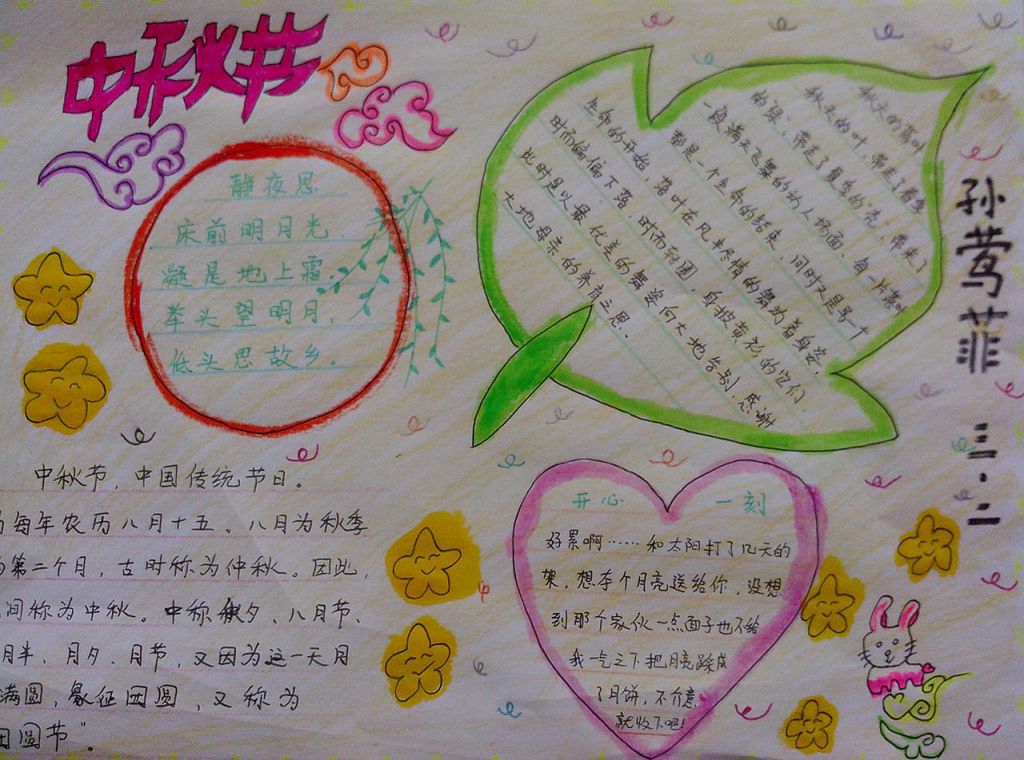 中秋节
静夜思
床前明月光，
凝是地上霜。
举头望明月，
低头思故乡。
秋天的落叶
秋天的叶，带走了春季
的“绿”，带走了夏季的“花”，带来了
一段满天飞舞的动人场面，每一片落叶
都是一个生命的结束，同时又是另一个
生命的开始，落叶在风中尽情的舞动着身姿，
时而偏偏下落，时而转圈，身披黄花的它们
比时是以最优美的舞姿向大地告别，感谢
大地母亲的养育之恩．
孙莺菲
三·二
中秋节，中国传统节日。
为每年农历八月十五。八月为秋季
的第二个月，古时称为仲秋。因此，
间称为中秋。中称秋夕、八月节、
月半、月夕、月节，又因为这一天月
满圆，象征团圆，又称为
团圆节”。
开心一刻
好累啊……和太阳打了几天的
架，想夺个月亮送给你，没想
到那个家伙一点面子也不给
我一气之下把月亮踩成
了月饼，不介意
就收下吧！